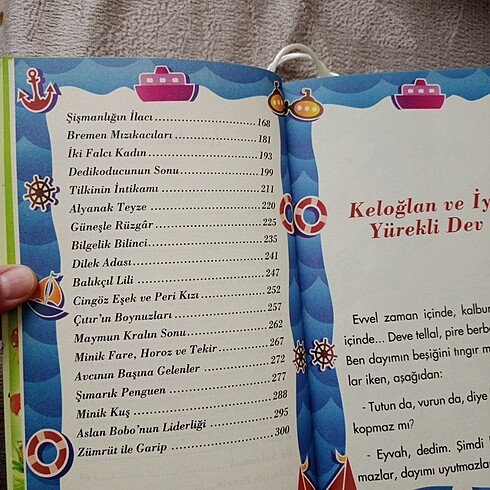 Şişmanlığın İlacı 168
Bremen Mızıkacıları 181
İki Falcı Kadın 193
Dedikoducunun Sonu 199
Tilkinin İntikamı 211
Alyanak Teyze 220
Güneşle Rüzgâr 225
Bilgelik Bilinci 235
Dilek Adası 241
Balıkçıl Lili 247
Cingöz Eşek ve Peri Kızı 252
Çıtır'ın Boynuzları 257
Maymun Kralın Sonu 262
Minik Fare, Horoz ve Tekir 267
Avcının Başına Gelenler 272
Şımarık Penguen 277
Minik Kuş 288
Aslan Bobo'nun Liderliği 295
Zümrüt ile Garip 300
Keloğlan ve İy
Yürekli Dev
Evvel zaman içinde, kalbur
içinde... Deve tellal, pire berbe
Ben dayımın beşiğini tıngır m
lar iken, aşağıdan:
- Tutun da, vurun da, diye
kopmaz mı?
- Eyvah, dedim. Şimdi
mazlar, dayımı uyutmazlar